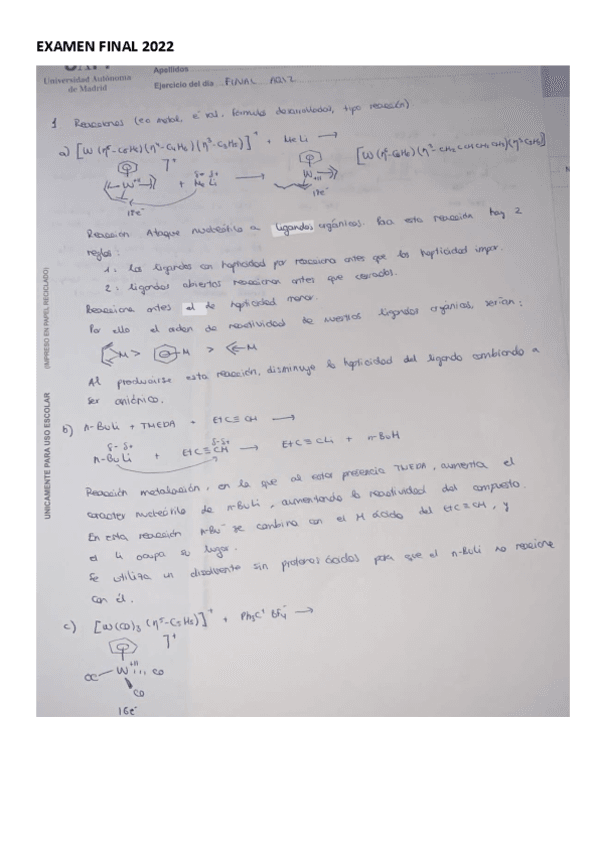 EXAMEN FINAL 2022
Universidad Autónoma
de Madrid
Apellidos
Ejercicio del día FINAL AQI2
1 Reacciones (eo metal, e⁻ val, fórmulas desarrolladas, tipo reacción)
a) [W(η⁶-C₆H₆)(η⁴-C₄H₆)(η³-C₃H₅)]⁺ + MeLi →
[W(η⁶-C₆H₆)(η³-CH₂CHCHCH₂CH₃)(η³C₃H₅)]
]⁺
W⁺ᴵᴵ + Me Li → W⁺ᴵᴵ
δ⁻ δ⁺
18e⁻ 18e⁻
Reaccion Ataque nucleófilo a ligandos orgánicos. Para esta reacción hay 2
reglas:
1: los ligandos con hapticidad par reaccionan antes que los hapticidad impar.
2: ligandos abiertos reaccionan antes que cerrados.
Reacciona antes el de hapticidad menor.
Por ello el orden de reactividad de nuestros ligandos orgánicos, serían:
M > M > M
Al producirse esta reacción, disminuye la hapticidad del ligando cambiando a
ser aniónico.
b) n-BuLi + TMEDA + EtC≡CH →
δ⁻ δ⁺ δ⁻ δ⁺
n-BuLi + EtC≡CH → EtC≡CLi + n-BuH
Reacción metalación, en la que al estar presencia TMEDA, aumenta el
caracter nucleófilo de nBuLi, aumentando la reactividad del compuesto.
En esta reacción nBu⁻ se combina con el H ácido del EtC≡CH, y
el Li ocupa su lugar.
Se utiliza un disolvente sin protones ácidos para que el n-BuLi no reaccione
con él.
c) [W(CO)₃(η⁵-C₅H₅)]⁺ + Ph₃C⁺ BF₄⁻ →
]⁺
OC W⁺ᴵᴵ CO
CO
16e⁻
UNICAMENTE PARA USO ESCOLAR
(IMPRESO EN PAPEL RECICLADO)